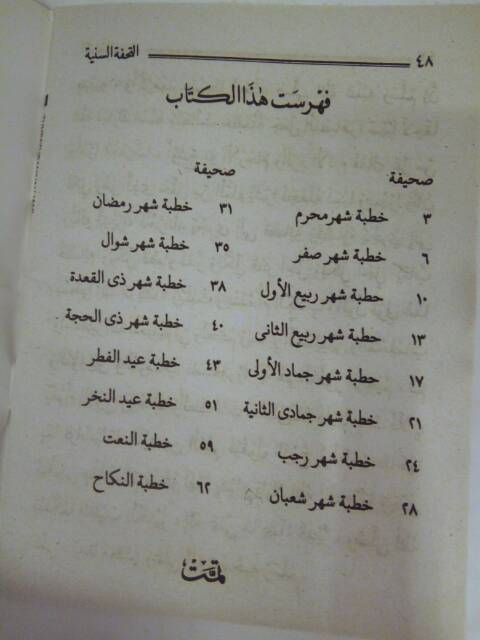 ٤٨ التحفة السنية
فهرست هذا الكتاب
صحيفة صحيفة
٣ خطبة شهر محرم ٣١ خطبة شهر رمضان
٦ خطبة شهر صفر ٣٥ خطبة شهر شوال
١٠ حطبة شهر ربيع الأول ٣٨ خطبة شهر ذى القعدة
١٣ حطبة شهر ربيع الثانى ٤٠ خطبة شهر ذى الحجة
١٧ حطبة شهر جماد الأولى ٤٣ خطبة عيد الفطر
٢١ خطبة شهر جمادى الثانية ٥١ خطبة عيد النخر
٢٤ خطبة شهر رجب ٥٩ خطبة النعت
٢٨ خطبة شهر شعبان ٦٢ خطبة النكاح
تمت